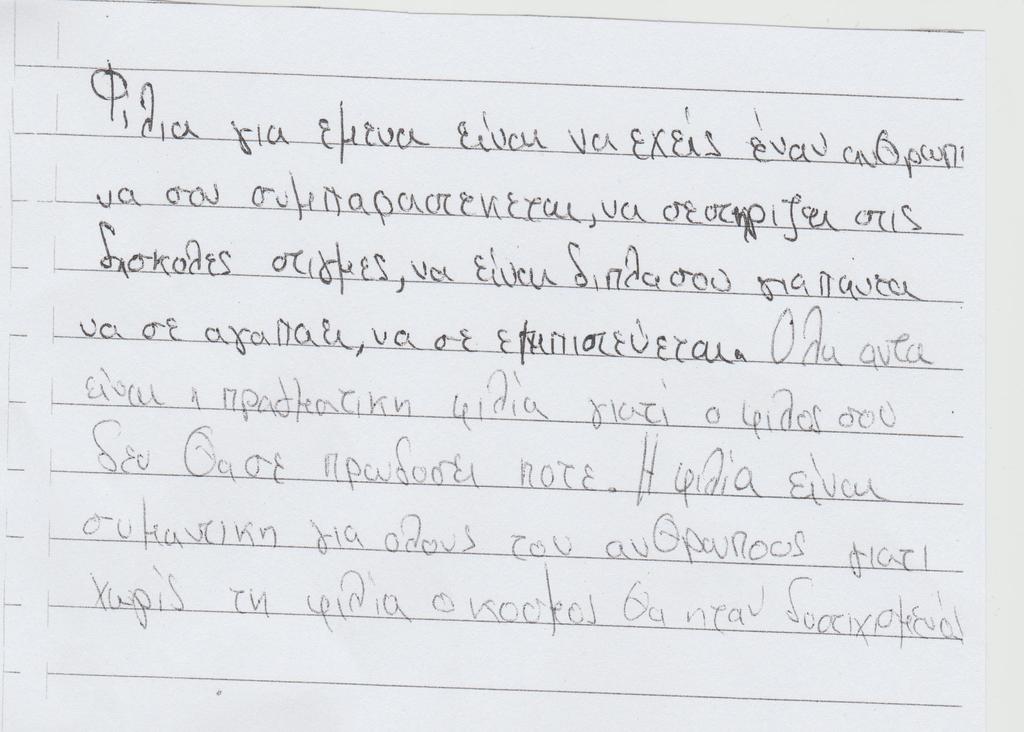 Φιλια για εμενα είναι να εχεις έναν ανθρωπι
να σου συμπαραστεκεται, να σε στηριζει στις
δισκολες στιγμες, να είναι διπλα σου για παντα
να σε αγαπαει, να σε εμπιστεύεται. Ολα αυτα
είναι η πραγματικη φιλία γιατί ο φιλος σου
δεν θα σε πρωδοσει ποτε. Η φιλία είναι
συμαντικη για ολους του ανθρωποος γιατι
χωρίς τη φιλία ο κοσμος θα ηταν